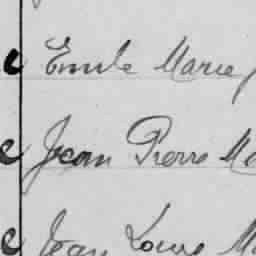 e Emile Marie
e Jean Pierre Ma
e Jean Louis M